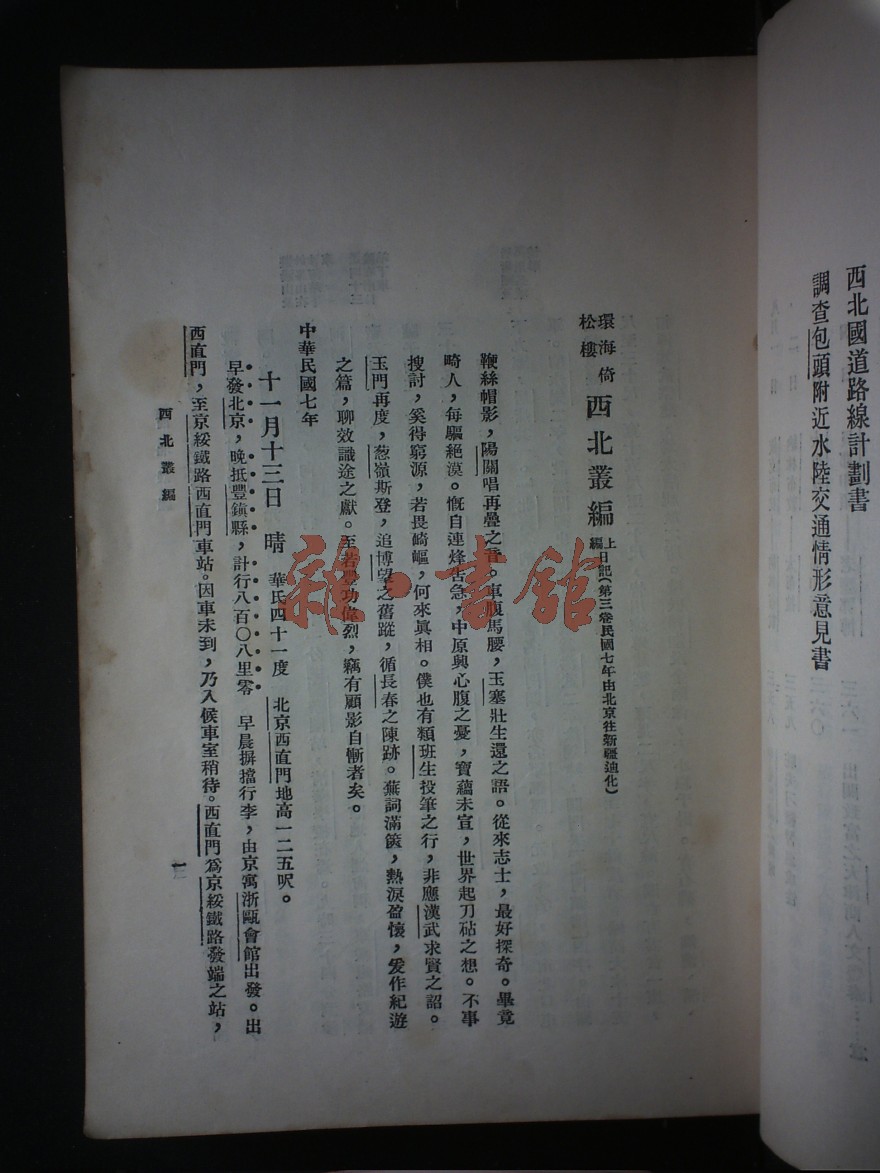 西北國道路線計劃書
調查包頭附近水陸交通情形意見書
環海倚松樓 西北叢編 上編 日記(第三卷民國七年由北京往新疆迪化)
鞭絲帽影,陽關唱再疊之音。車腹馬腰,玉塞壯生還之語。從來志士,最好探奇。畢竟
畸人,每驅絕漠。慨自連烽告急,中原興心腹之憂,寶藴未宣,世界起刀砧之想。不事
搜討,奚得窮源,若畏崎嶇,何來眞相。僕也有類班生投筆之行,非應漢武求賢之詔。
玉門再度,葱嶺斯登,追博望之舊蹤,循長春之陳跡。蕪詞滿篋,熱淚盈懷,爰作紀遊
之篇,聊效識途之獻。至若豐功偉烈,竊有顧影自慚者矣。
中華民國七年
十一月十三日 晴 華氏四十一度 北京西直門地高一二五呎。
早發北京,晚抵豐鎮縣,計行八百〇八里零 早晨摒擋行李,由京寓浙甌會館出發。出
西直門,至京綏鐵路西直門車站。因車未到,乃入候車室稍待。西直門爲京綏鐵路發端之站,
西北叢編
一
雜·書館